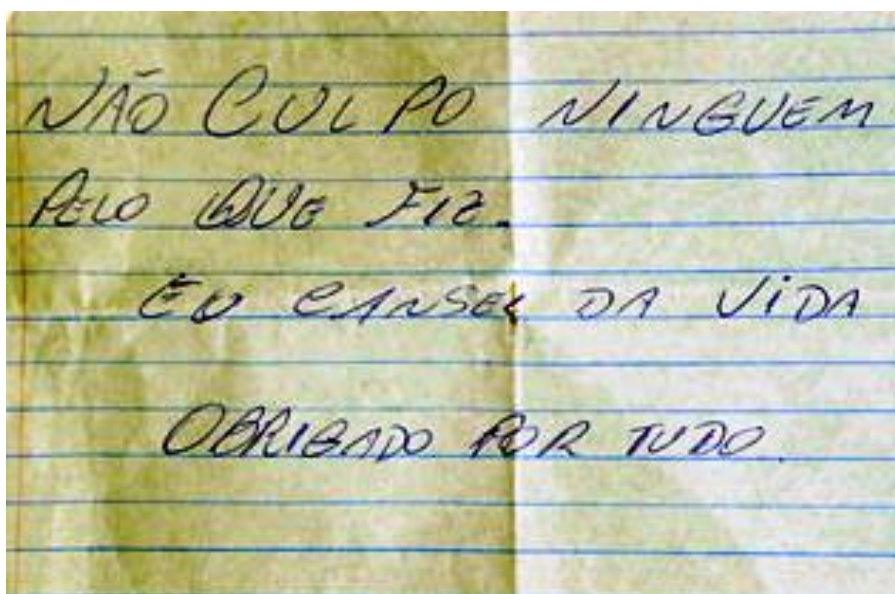 NÃO CULPO NINGUEM
PELO QUE FIZ.
EU CANSEI DA VIDA
OBRIGADO POR TUDO.